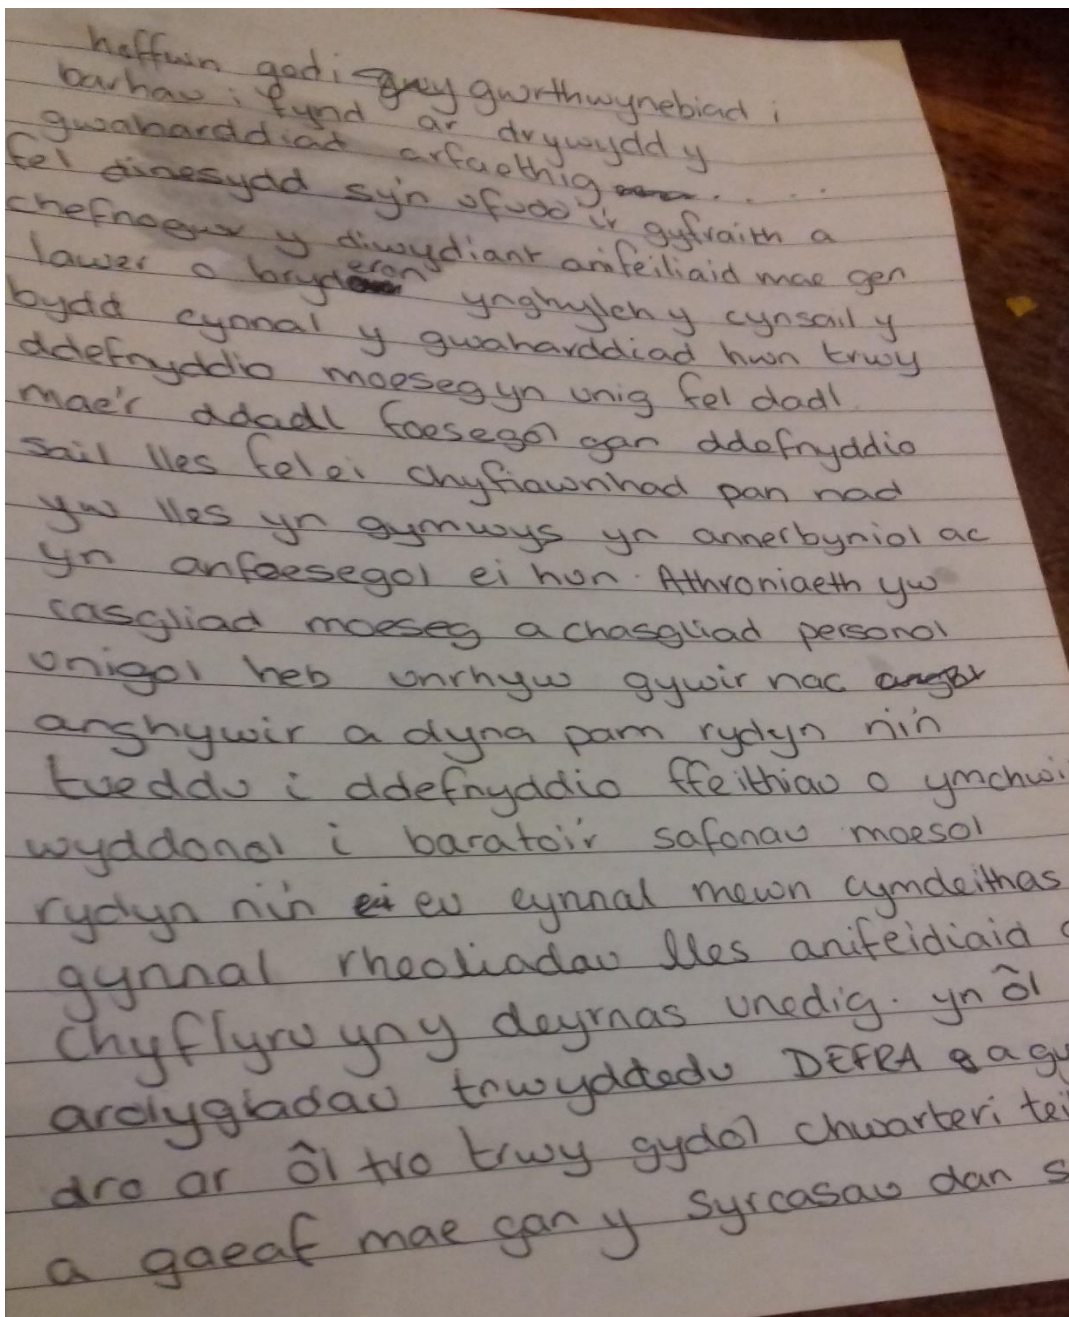 hoffwn godi gwrthwynebiad i
barhau i fynd ar drywydd y
gwaharddiad arfaethig
fel dinesydd sy'n ufudd i'r gyfraith a
chefnogwr y diwydiant anifeiliaid mae gen
lawer o bryderon ynghylch y cynsail y
bydd cynnal y gwaharddiad hwn trwy
ddefnyddio moeseg yn unig fel dadl
mae'r ddadl foesegol gan ddefnyddio
sail lles fel ei chyfiawnhad pan nad
yw lles yn gymwys yn annerbyniol ac
yn anfoesegol ei hun. Athroniaeth yw
casgliad moeseg a chasgliad personol
unigol heb unrhyw gywir nac
anghywir a dyna pam rydyn ni'n
tueddu i ddefnyddio ffeithiau o ymchwi
wyddonol i baratoi'r safonau moesol
rydyn ni'n eu cynnal mewn cymdeithas
gynnal rheoliadau lles anifeidiaid
Chyflyru yn y deyrnas unedig. yn ôl
arolygiadau trwyddedu DEFRA a gy
dro ar ôl tro trwy gydol chwarteri tei
a gaeaf mae gan y syrcasau dan s